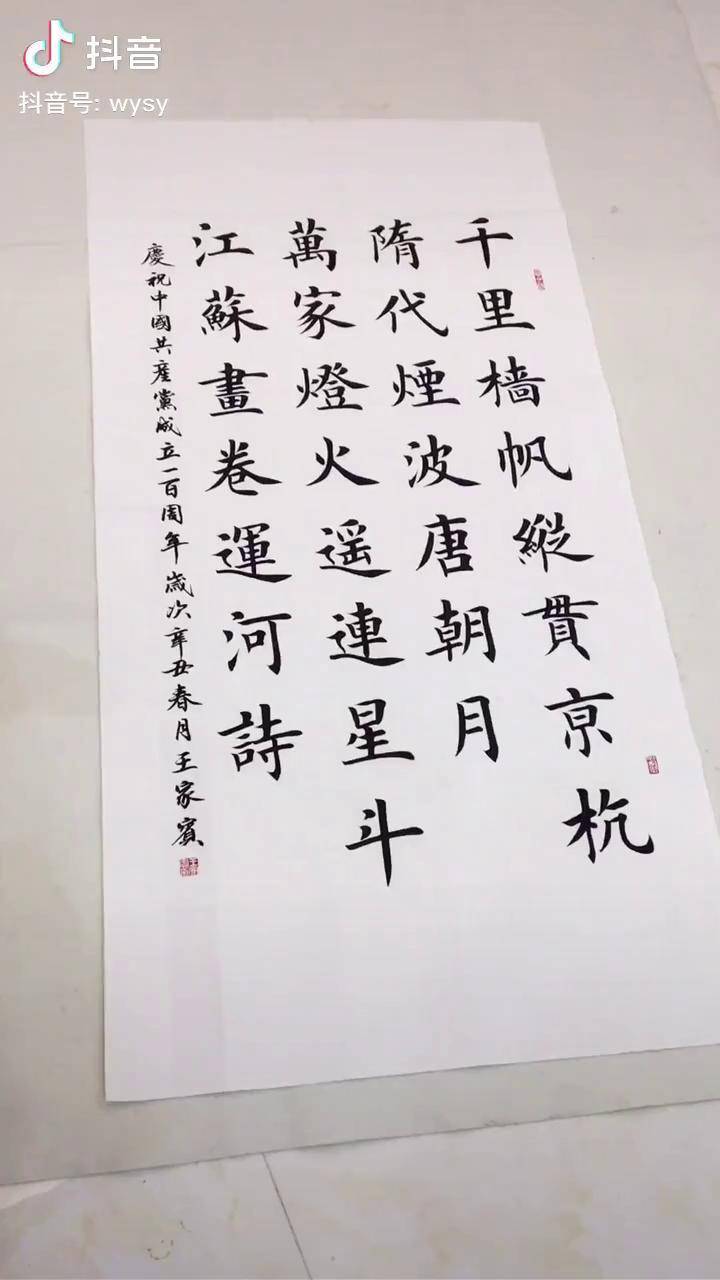 抖音
抖音号: wysy
千里樯帆縱貫京杭
隋代煙波唐朝月
萬家燈火遥連星斗
江蘇畫卷運河詩
慶祝中國共産黨成立一百周年歲次辛丑春月王家賓